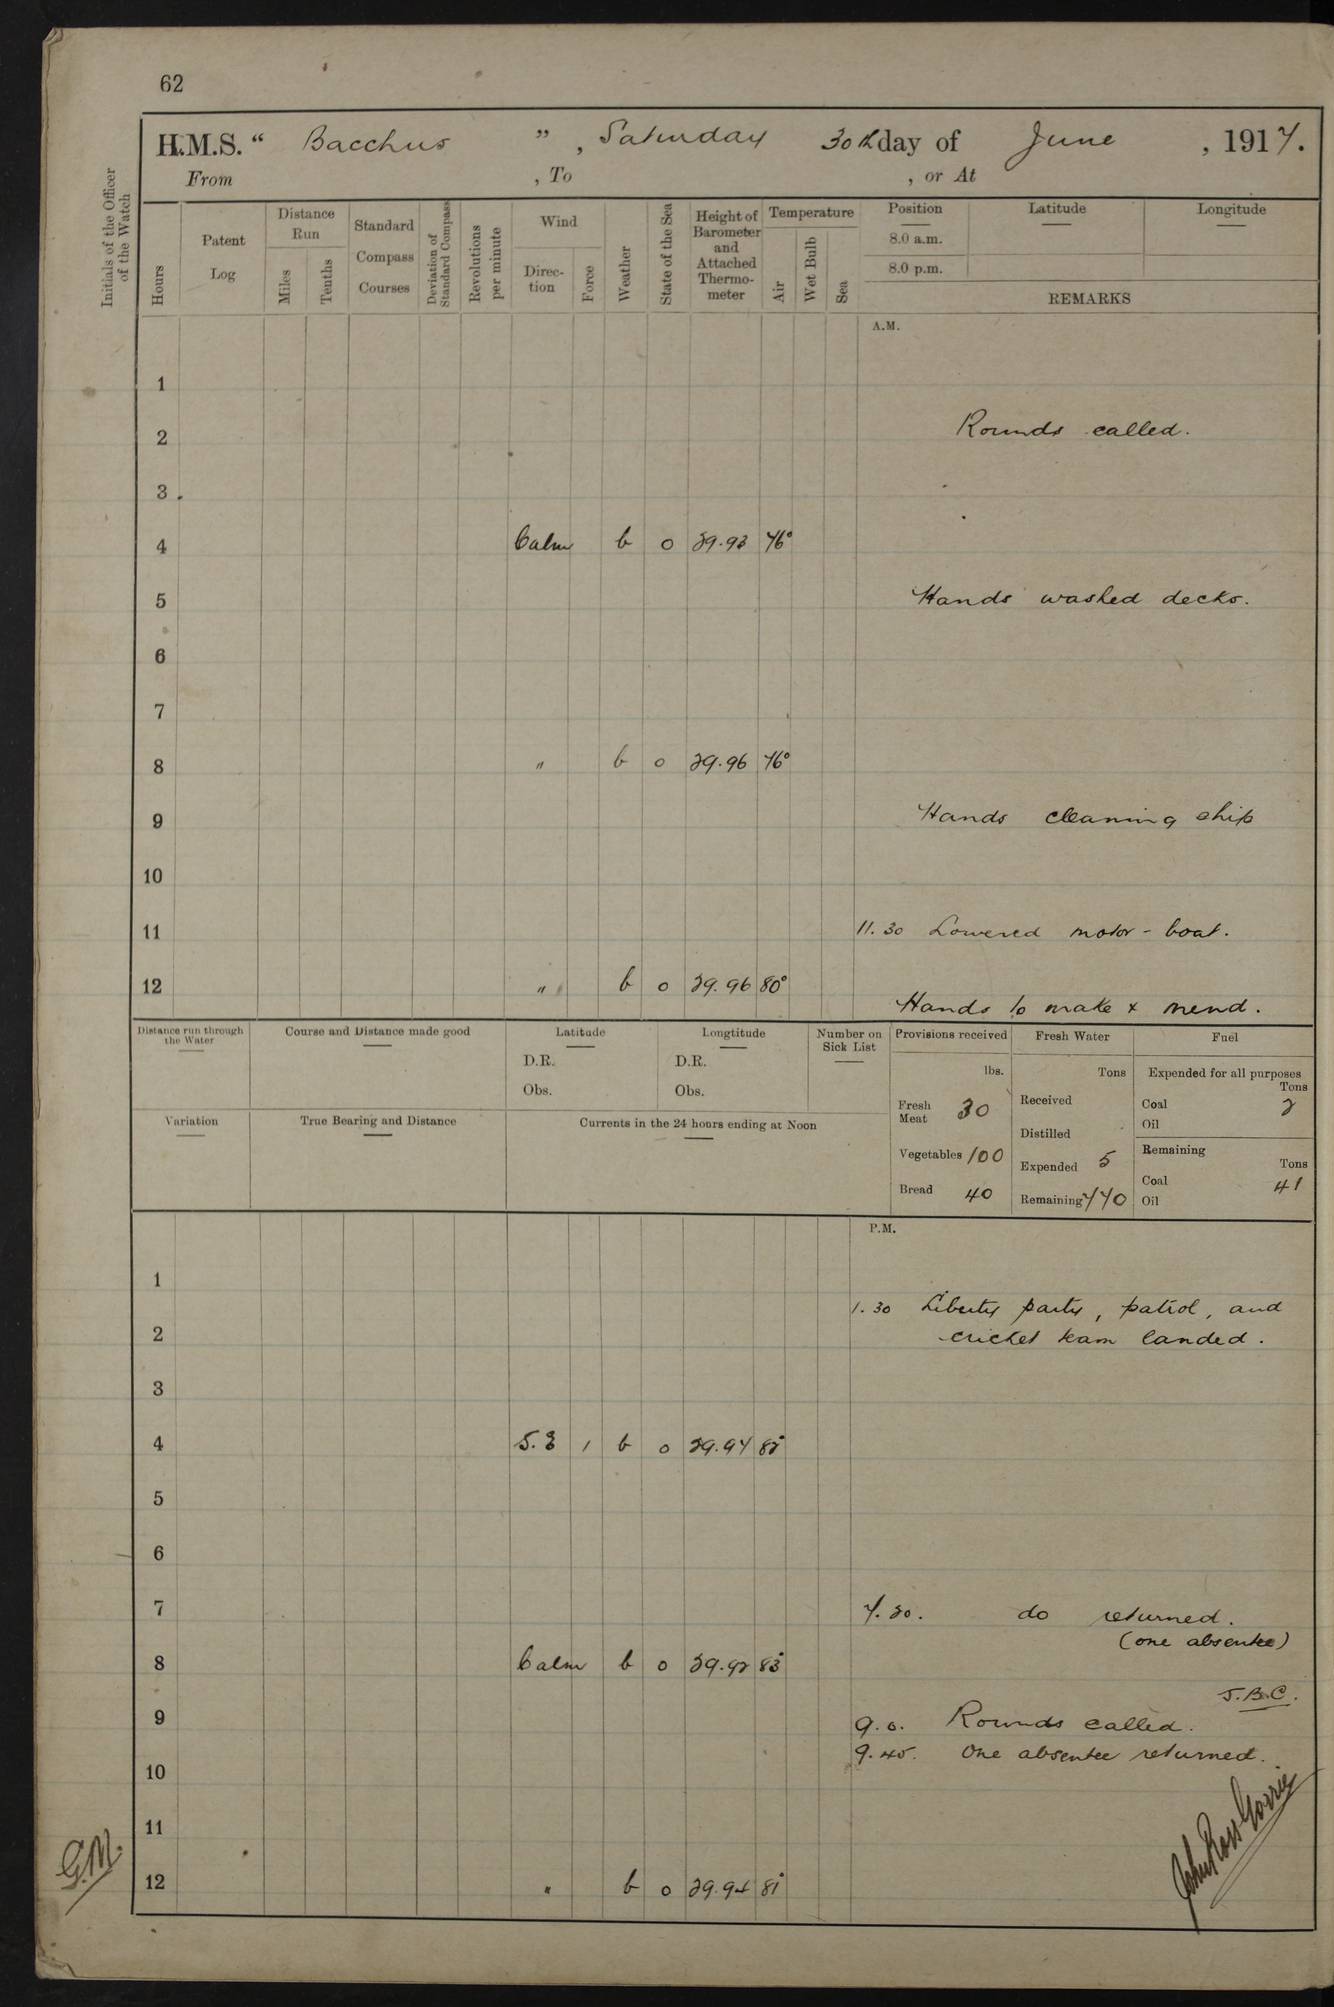 62
H.M.S. " Bacchus ", Saturday 30th day of June, 1917.
From , To , or At
Initials of the Officer of the Watch
Hours
Patent Log
Distance Run
Miles
Tenths
Standard Compass Courses
Deviation of Standard Compass
Revolutions per minute
Wind
Direc-tion
Force
Weather
State of the Sea
Height of Barometer and Attached Thermo-meter
Temperature
Air
Wet Bulb
Sea
Position
8.0 a.m.
8.0 p.m.
Latitude
Longitude
REMARKS
A.M.
1
2 Rounds called.
3
4 Calm b o 29.93 76°
5 Hands washed decks.
6
7
8 " b o 29.96 76°
9 Hands cleaning ship
10
11 11.30 Lowered motor-boat.
12 " b o 29.96 80°
Hands to make & mend.
Distance run through the Water
Course and Distance made good
Latitude
D.R.
Obs.
Longtitude
D.R.
Obs.
Number on Sick List
Variation
True Bearing and Distance
Currents in the 24 hours ending at Noon
Provisions received
lbs.
Fresh Meat 30
Vegetables 100
Bread 40
Fresh Water
Tons
Received
Distilled
Expended 5
Remaining 770
Fuel
Expended for all purposes
Tons
Coal 2
Oil
Remaining
Tons
Coal 41
Oil
P.M.
1
1.30 Liberty party, patrol, and
2 cricket team landed.
3
4 S.E 1 b o 29.94 82°
5
6
7 7.30. do returned.
(one absentee)
8 Calm b o 29.92 83°
J.B.C.
9 9.0. Rounds called.
9.45. One absentee returned.
10
11
G.M.
12 " b o 29.94 81°
John Ross Gorrie